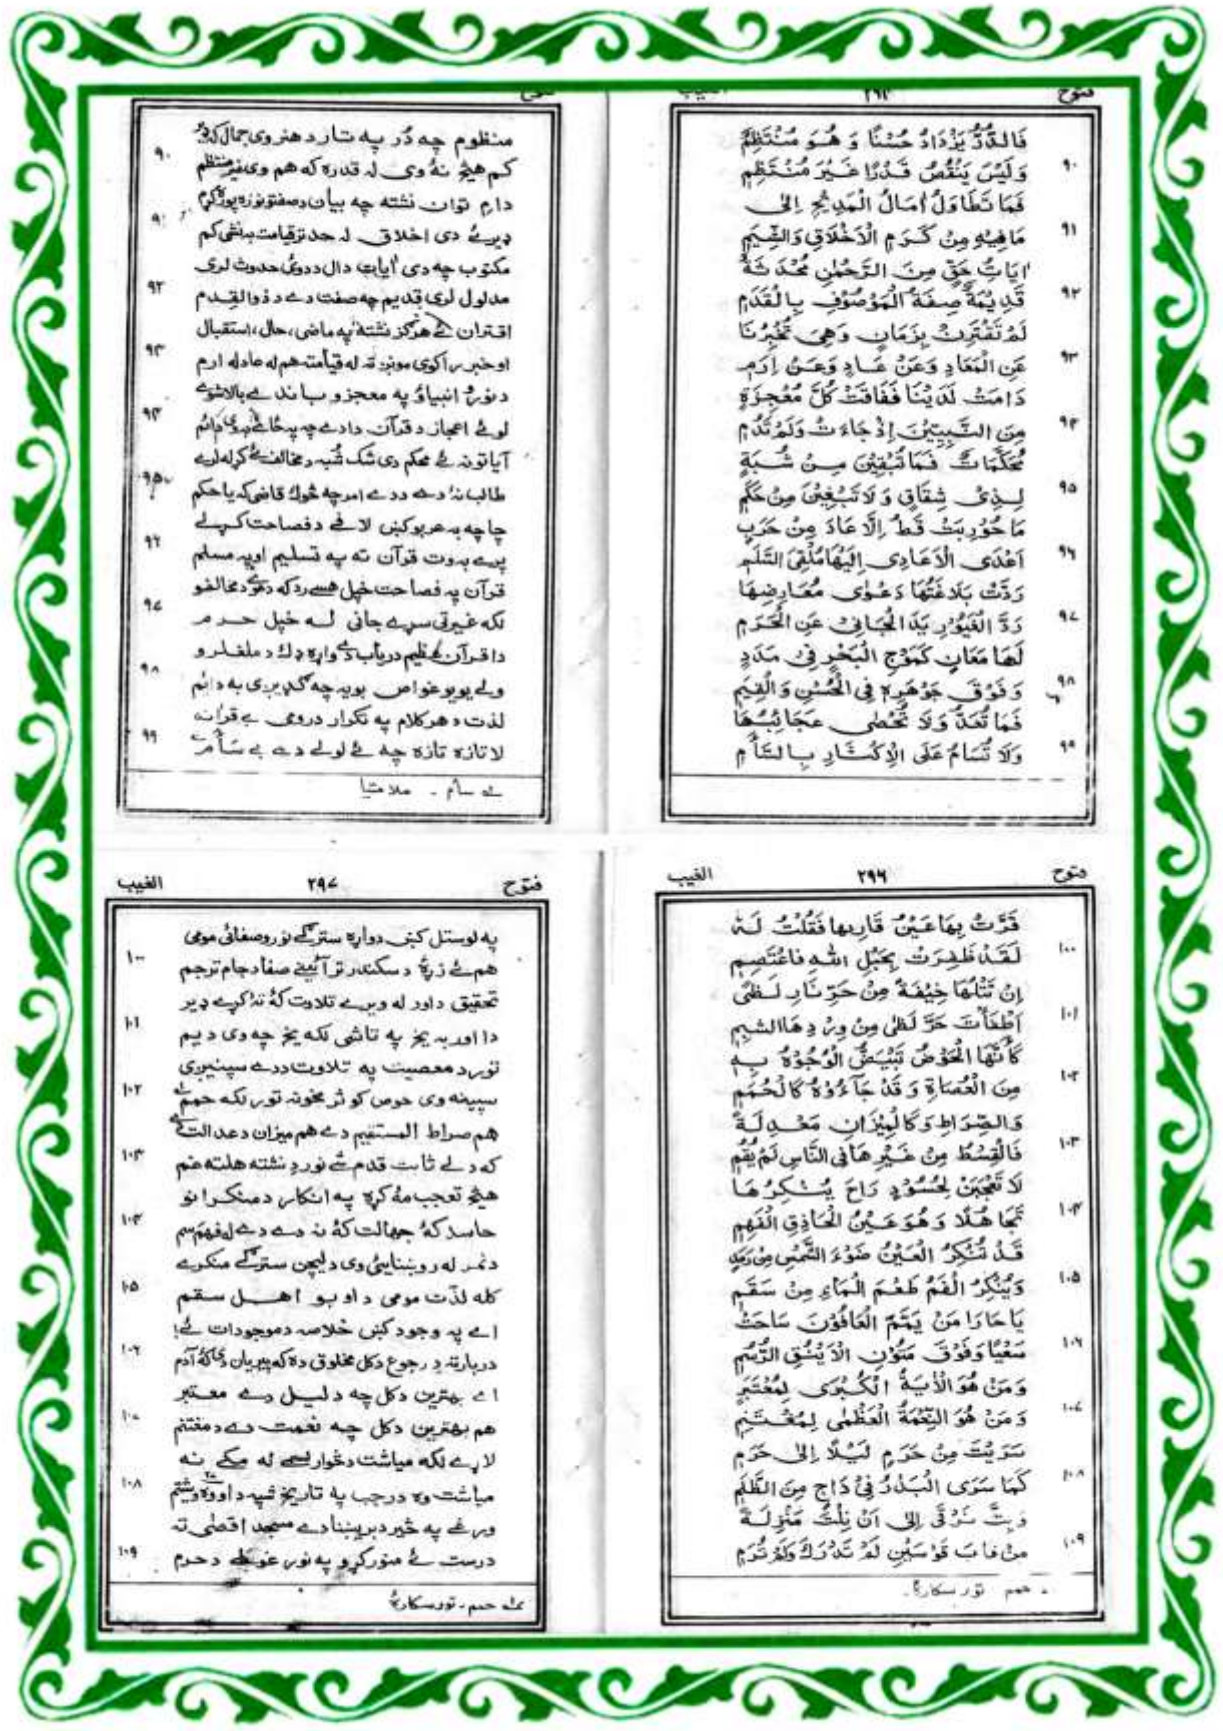 فتوح
٢٩٤
الغيب
فَالدُّرُّ يَزْدَادُ حُسْنًا وَ هُوَ مُنْتَظِمٌ
٩٠
وَلَيْسَ يَنْقُصُ قَدْرًا غَيْرَ مُنْتَظِمٍ
فَمَا تَطَاوَلُ اٰمَالُ الْمَدِيْحِ اِلٰى
٩١
مَا فِيْهِ مِنْ كَرَمِ الْاَخْلَاقِ وَالشِّيَمِ
اٰيَاتُ حَقٍّ مِنَ الرَّحْمٰنِ مُحْدَثَةٌ
٩٢
قَدِيْمَةٌ صِفَةُ الْمَوْصُوْفِ بِالْقَدَمِ
لَمْ تَقْتَرِنْ بِزَمَانٍ وَهِيَ تُخْبِرُنَا
٩٣
عَنِ الْمَعَادِ وَعَنْ عَادٍ وَعَنْ اِرَمِ
دَامَتْ لَدَيْنَا فَفَاقَتْ كُلَّ مُعْجِزَةٍ
٩٤
مِنَ النَّبِيِّيْنَ اِذْ جَاءَتْ وَلَمْ تَدُمِ
مُحَكَّمَاتٌ فَمَا تُبْقِيْنَ مِنْ شُبَهٍ
٩٥
لِذِيْ شِقَاقٍ وَلَا تَبْغِيْنَ مِنْ حَكَمِ
مَا حُوْرِبَتْ قَطُّ اِلَّا عَادَ مِنْ حَرَبٍ
٩٦
اَعْدَى الْاَعَادِى اِلَيْهَا مُلْقِىَ السَّلَمِ
رَدَّتْ بَلَاغَتُهَا دَعْوٰى مُعَارِضِهَا
٩٧
رَدَّ الْغَيُوْرِ يَدَ الْجَانِيْ عَنِ الْحَرَمِ
لَهَا مَعَانٍ كَمَوْجِ الْبَحْرِ فِيْ مَدَدٍ
٩٨
وَ فَوْقَ جَوْهَرِهٖ فِي الْحُسْنِ وَالْقِيَمِ
فَمَا تُعَدُّ وَلَا تُحْصٰى عَجَائِبُهَا
٩٩
وَلَا تُسَامُ عَلَى الْاِكْثَارِ بِالسَّأَمِ
فتوح
منظوم چه دُر په تار د هنر وى جمال
٩٠
کم هيڅ نۀ وى له قدره که هم وى غير منتظم
دا م توان نشته چه بيان د صفتونو
٩١
ډيرئے دى اخلاق له حد تر قيامت به نشى کم
مکتوب چه دى اٰيات دال دوئ حدوث لرى
٩٢
مدلول لرى قديم چه صفت دے د ذوالقِدم
اقتران ئے هرګز نشته په ماضى، حال، استقبال
٩٣
او خبر را کوى مونږ ته له قيامته هم له عاد له ارم
د نورُ انبياؤ په معجزو باندے بالا شوے
٩٤
لوئے اعجاز د قرآن دا دے چه په ځائے
آياتونه ئے محکم دى شک شُبه د مخالف ئے
٩٥
طالب نۀ دے د دے امر چه څوک قاضى که يا حکم
چا چه به عربو کښ لافے د فصاحت کړلے
٩٦
پرے بوت قرآن ته په تسليم او په مسلم
قرآن په فصاحت خپل هسے رد که دعوٰے د مخالفو
٩٧
لکه غيرتى سړے جانى له خپل حرم
دا قرآن عظيم درياب دے واړه ډک د ملغلرو
٩٨
ولے يو يو غواص بويه چه ګډيږى به دائم
لذت د هر کلام په تکرار درومى بے قرآنه
٩٩
لا تازه تازه چه ئے لولے دے بے سَأم
ـه سأم ـ ملامتيا
فتوح
٢٩٦
الغيب
قَرَّتْ بِهَا عَيْنُ قَارِيهَا فَقُلْتُ لَهٗ
١٠٠
لَقَدْ ظَفِرْتَ بِحَبْلِ اللهِ فَاعْتَصِمِ
اِنْ تَتْلُهَا خِيْفَةً مِنْ حَرِّ نَارِ لَظٰى
١٠١
اَطْفَأْتَ حَرَّ لَظٰى مِنْ وِرْدِهَا الشَّبِمِ
كَأَنَّهَا الْحَوْضُ تَبْيَضُّ الْوُجُوْهُ بِهٖ
١٠٢
مِنَ الْعُصَاةِ وَقَدْ جَآءُوْهُ كَالْحُمَمِ
وَالصِّرَاطِ وَ كَالْمِيْزَانِ مَعْدِلَةً
١٠٣
فَالْقِسْطُ مِنْ غَيْرِهَا فِي النَّاسِ لَمْ يَقُمِ
لَا تَعْجَبَنْ لِحَسُوْدٍ رَاحَ يُنْكِرُهَا
١٠٤
تَجَاهُلًا وَ هُوَ عَيْنُ الْحَاذِقِ الْفَهِمِ
قَدْ تُنْكِرُ الْعَيْنُ ضَوْءَ الشَّمْسِ مِنْ رَمَدٍ
١٠٥
وَيُنْكِرُ الْفَمُ طَعْمَ الْمَاءِ مِنْ سَقَمِ
يَا خَيْرَ مَنْ يَمَّمَ الْعَافُوْنَ سَاحَتَهٗ
١٠٦
سَعْيًا وَفَوْقَ مُتُوْنِ الْاَيْنُقِ الرُّسُمِ
وَمَنْ هُوَ الْاٰيَةُ الْكُبْرٰى لِمُعْتَبِرٍ
١٠٧
وَمَنْ هُوَ النِّعْمَةُ الْعُظْمٰى لِمُغْتَنِمِ
سَرَيْتَ مِنْ حَرَمٍ لَيْلًا اِلٰى حَرَمٍ
١٠٨
كَمَا سَرَى الْبَدْرُ فِيْ دَاجٍ مِنَ الظُّلَمِ
وَبِتَّ تَرْقٰى اِلٰى اَنْ نِلْتَ مَنْزِلَةً
١٠٩
مِنْ قَابَ قَوْسَيْنِ لَمْ تُدْرَكْ وَلَمْ تُرَمِ
ـ حمم تور سکاره ـ
فتوح
٢٩٧
الغيب
په لوستل کښ دواړه سترګے نور و صفائى مومى
١٠٠
هم ئے زړۀ د سکندر تر آئينے صفا د جام تر جم
تحقيق د اور له ويرے تلاوت کۀ نۀ کړے ډير
١٠١
دا اور به يخ په تا شى لکه يخ چه وى ديم
تور د معصيت په تلاوت د دے سپينيږى
١٠٢
سپينه وى حوض کوثر مخونه تور لکه حمم
هم صراط المستقيم دے هم ميزان د عدالت
١٠٣
که دلے ثابت قدم شے نور د نشته هلته غم
هيڅ تعجب مۀ کړه په انکار د منکرانو
١٠٤
حاسد کۀ جهالت کۀ نه دے دے له فهم سم
د نمر له روښنايئ وى د ليچن سترګے منکرے
١٠٥
کله لذّت مومى د اوبو اهل سقم
اے په وجود کښ خلاصه د موجودات ئے!
١٠٦
دربار ته د رجوع د کل مخلوق ده که پيريان دى کۀ آدم
اے بهترين د کل چه دليل دے معتبر
١٠٧
هم بهترين د کل چه نعمت دے د مغتنم
لاړے لکه مياشت د څوارلسمے له مکے نه
١٠٨
مياشت وه د رجب په تاريخ شپه د اووۀ ويشتم
ورغے په څير د بريښنا دے مسجد اقصٰى ته
١٠٩
درست ئے منور کړو په نور غوطے د حرم
ـه حمم ـ تور سکاره